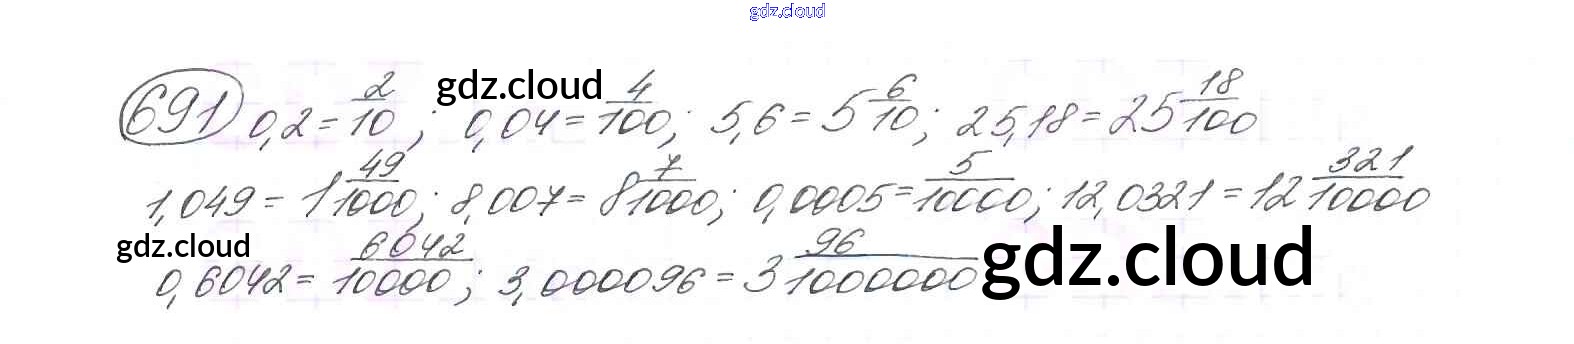 gdz.cloud
691 0,2 = 2/10 ; gdz.cloud 0,04 = 4/100 ; 5,6 = 5 6/10 ; 25,18 = 25 18/100
1,049 = 1 49/1000 ; 8,007 = 8 7/1000 ; 0,0005 = 5/10000 ; 12,0321 = 12 321/10000
gdz.cloud 0,6042 = 6042/10000 ; 3,000096 = 3 96/1000000 gdz.cloud